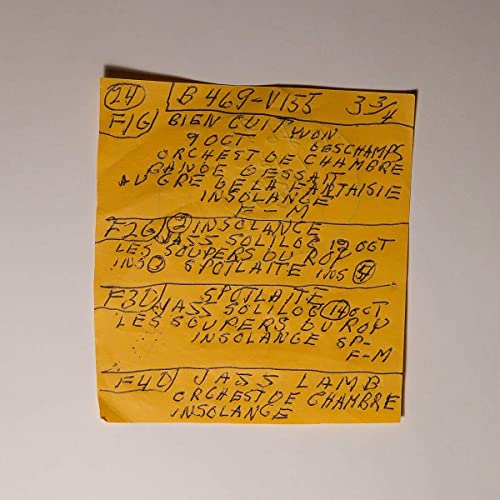 24 B 469-V155 3 3/4
F1G BIEN CUIT WON
9 OCT DESCHAMPS
ORCHEST DE CHAMBRE
BANDE DESSAIT
AU GRE DE LA FANTAISIE
INSOLANGE
F-M
F2G 2 INSOLANCE
JASS SOLILOG 19 OCT
LES SOUPERS DU ROY
INS SPOTLAITE INS 5
F3D SPOTLAITE
JASS SOLILOG 14 OCT
LES SOUPERS DU ROY
INSOLANGE SP-
F-M
F4D JASS LAMB
ORCHEST DE CHAMBRE
INSOLANGE